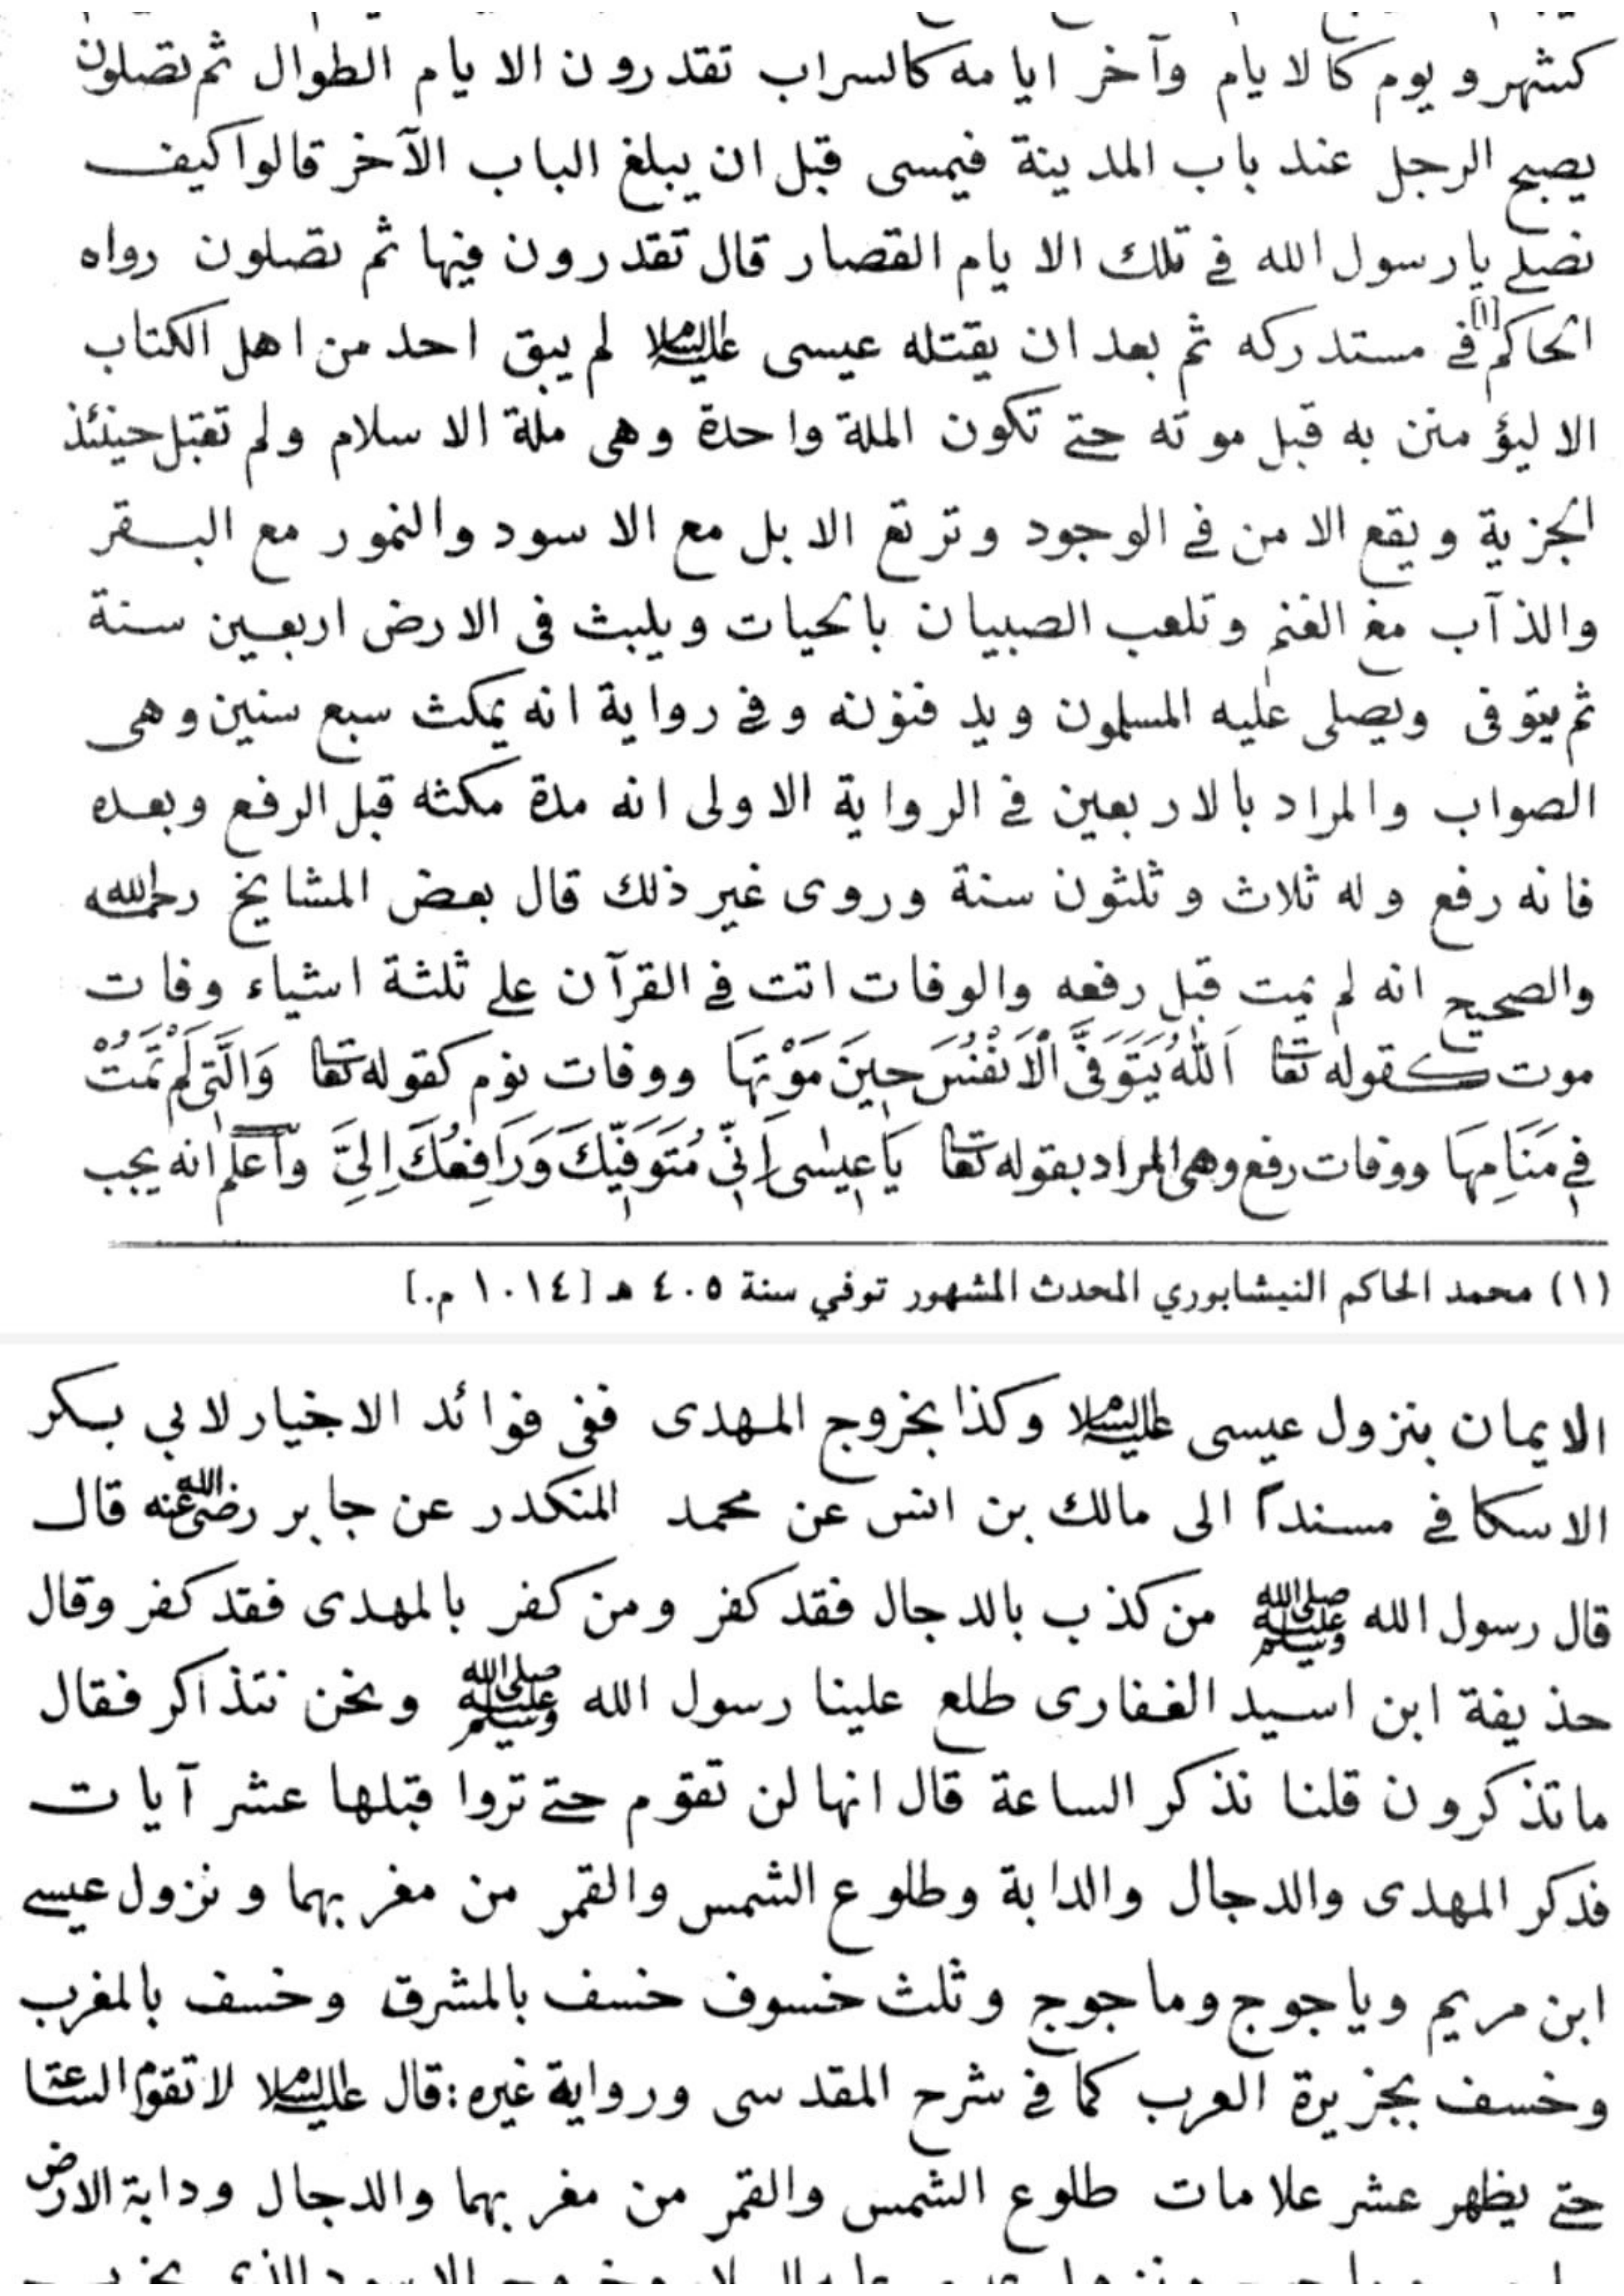 كشهر و يوم كالايام وآخر ايامه كالسراب تقدرون الايام الطوال ثم تصلون
يصبح الرجل عند باب المدينة فيمسى قبل ان يبلغ الباب الآخر قالوا كيف
نصلى يارسول الله فى تلك الايام القصار قال تقدرون فيها ثم تصلون رواه
الحاكم[١] فى مستدركه ثم بعد ان يقتله عيسى عليه السلام لم يبق احد من اهل الكتاب
الا ليؤمنن به قبل موته حتى تكون الملة واحدة وهى ملة الاسلام ولم تقبل حينئذ
الجزية ويقع الامن فى الوجود وترتع الابل مع الاسود والنمور مع البقر
والذآب مع الغنم وتلعب الصبيان بالحيات ويلبث فى الارض اربعين سنة
ثم يتوفى ويصلى عليه المسلمون ويدفنونه وفى رواية انه يمكث سبع سنين وهى
الصواب والمراد بالاربعين فى الرواية الاولى انه مدة مكثه قبل الرفع وبعده
فانه رفع وله ثلاث وثلثون سنة وروى غير ذلك قال بعض المشايخ رحمه الله
والصحيح انه لم يمت قبل رفعه والوفات اتت فى القرآن على ثلثة اشياء وفات
موت كقوله تعا اَللهُ يَتَوَفَّى الْاَنْفُسَ حِينَ مَوْتِهَا ووفات نوم كقوله تعا وَالَّتِى لَمْ تَمُتْ
فِى مَنَامِهَا ووفات رفع وهى المراد بقوله تعا يَا عِيسٰى اِنِّى مُتَوَفِّيكَ وَرَافِعُكَ اِلَىَّ واعلم انه يجب
(١) محمد الحاكم النيشابوري المحدث المشهور توفي سنة ٤٠٥ هـ [١٠١٤ م.]
الايمان بنزول عيسى عليه السلام وكذا بخروج المهدى ففى فوائد الاخيار لابي بكر
الاسكافى مسنداً الى مالك بن انس عن محمد المنكدر عن جابر رضى الله عنه قال
قال رسول الله صلى الله عليه وسلم من كذب بالدجال فقد كفر ومن كفر بالمهدى فقد كفر وقال
حذيفة ابن اسيد الغفارى طلع علينا رسول الله صلى الله عليه وسلم ونحن نتذاكر فقال
ماتذكرون قلنا نذكر الساعة قال انها لن تقوم حتى تروا قبلها عشر آيات
فذكر المهدى والدجال والدابة وطلوع الشمس والقمر من مغربهما ونزول عيسى
ابن مريم وياجوج وماجوج وثلث خسوف خسف بالمشرق وخسف بالمغرب
وخسف بجزيرة العرب كما فى شرح المقدسى ورواية غيره: قال عليه السلام لا تقوم الساعة
حتى يظهر عشر علامات طلوع الشمس والقمر من مغربهما والدجال ودابة الارض